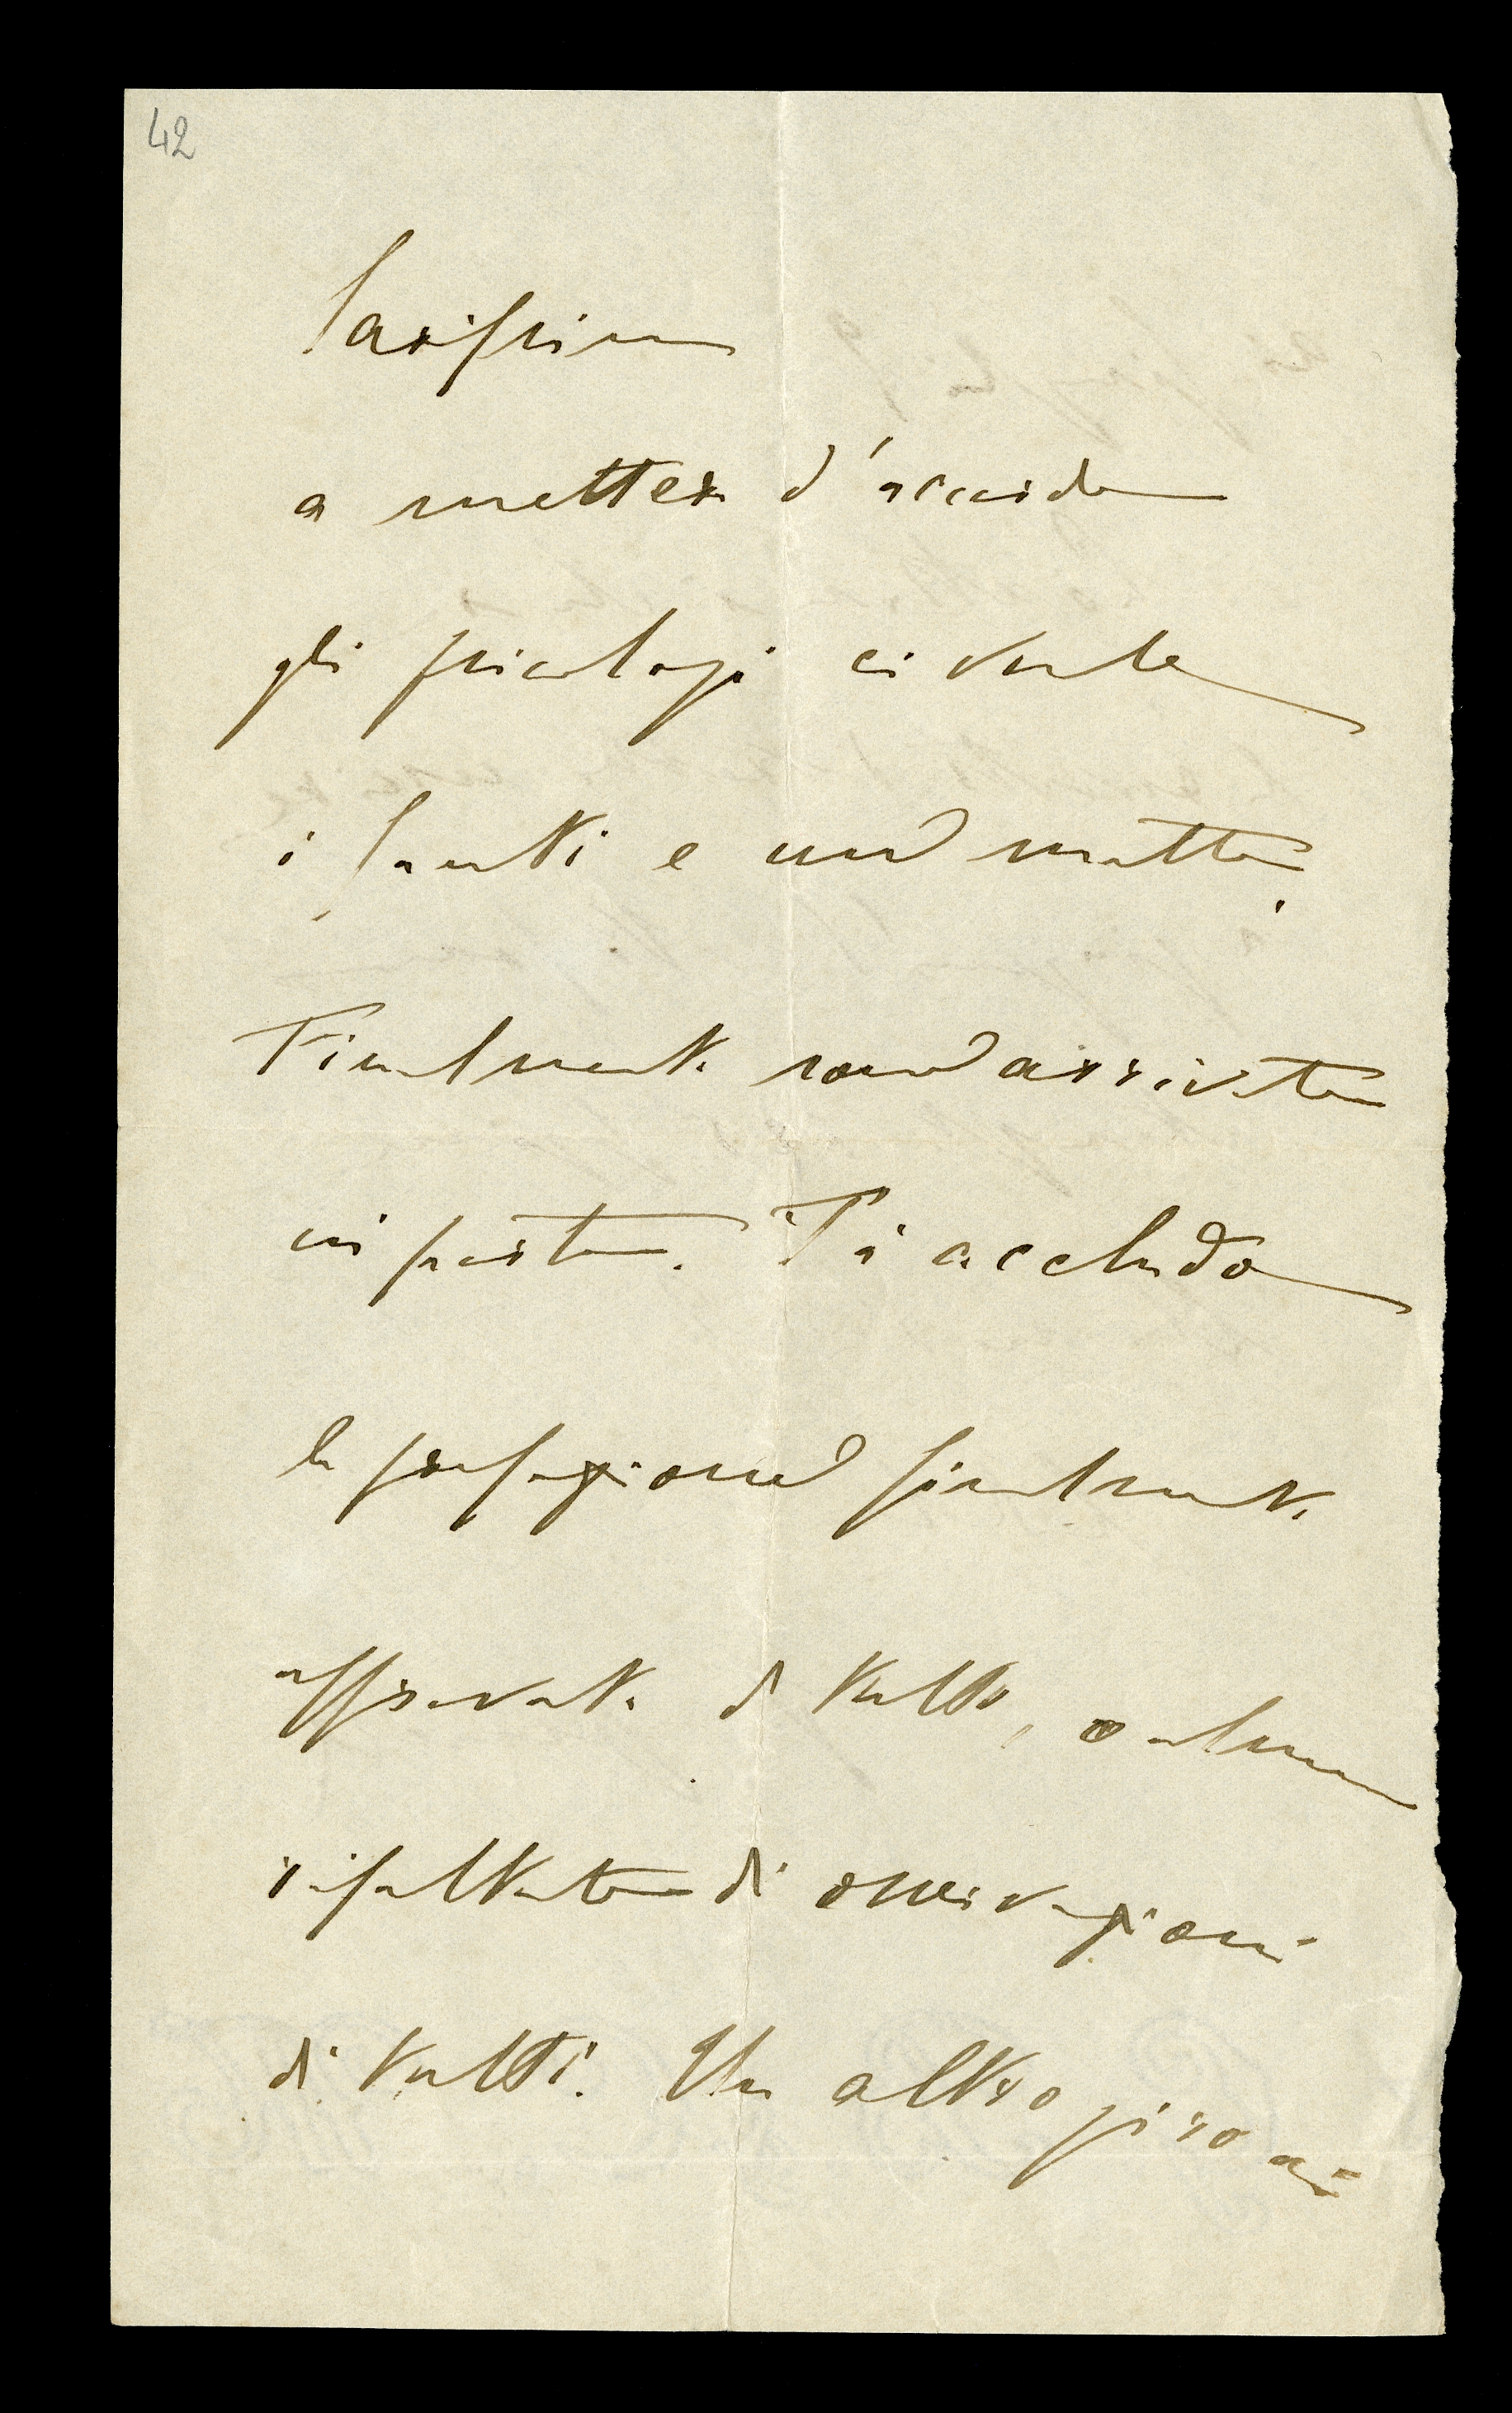 42
Carissimo
a metter d'accordo
gli psicologi ci vuole
i Santi e una matta.
Finalmente sono arrivato
in porto. Ti accludo
la prefazione finalmente
approvata da tutti, o almeno
risultato di osservazioni
di tutti. Un altro giro a-